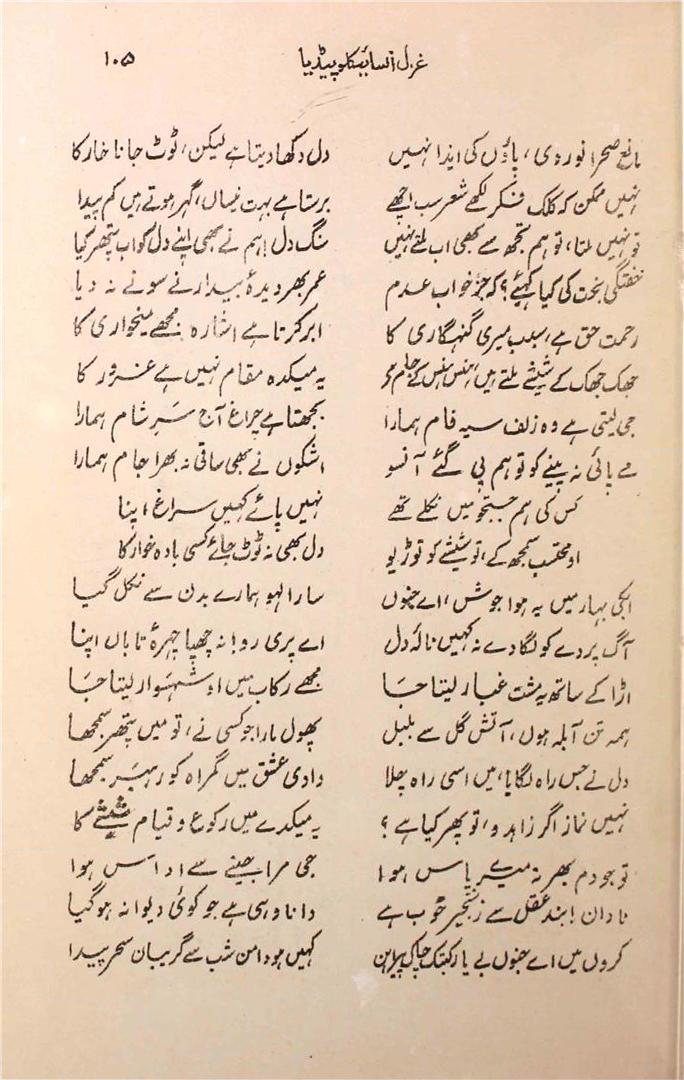 غزل انسائیکلوپیڈیا ۱۰۵
مانع صحرا نوردی، پاؤں کی ایذا نہیں دل دکھا دیتا ہے لیکن، ٹوٹ جانا خار کا
نہیں ممکن کہ کلک فکر لکھے شعر سب اچھے برستا ہے بہت نیساں، گہر ہوتے ہیں کم پیدا
تو نہیں ملتا، تو ہم تجھ سے بھی اب ملتے نہیں سنگ دل! ہم نے بھی اپنے دل کو اب پتھر کیا
خفتگی بخت کی کیا کہئے؟ کہ جز خواب عدم عمر بھر دیدۂ بیدار نے سونے نہ دیا
رحمت حق ہے، سبب میری گنہگاری کا ابر کرتا ہے اشارہ مجھے میخواری کا
جھک جھک کے شیشے ملتے ہیں، ہنس ہنس کے جام مے یہ میکدہ مقام نہیں ہے غرور کا
جی لیتی ہے وہ زلف سیہ فام ہمارا بجھتا ہے چراغ آج سر شام ہمارا
مے پائی نہ پینے کو تو ہم پی گئے آنسو اشکوں نے بھی ساقی نہ بھرا جام ہمارا
کس کی ہم جستجو میں نکلے تھے نہیں پاتے کہیں سراغ اپنا
او محتسب سمجھ کے، تو شیشے کو توڑیو دل بھی نہ ٹوٹ جائے کسی بادہ خوار کا
ابکی بہار میں یہ ہوا جوش، اے جنوں سارا لہو ہمارے بدن سے نکل گیا
آگ پردے کو لگا دے نہ کہیں نالۂ دل اے پری رو! نہ چھپا چہرۂ تاباں اپنا
اڑا کے ساتھ یہ مشت غبار لیتا جا مجھے رکاب میں او شہسوار لیتا جا
ہمہ تن آبلہ ہوں، آتش گل سے بلبل پھول مارا جو کسی نے، تو میں پتھر سمجھا
دل نے جس راہ لگایا، میں اسی راہ چلا وادی عشق میں گمراہ کو رہبر سمجھا
نہیں نماز اگر زاہدو، تو پھر کیا ہے؟ یہ میکدے میں رکوع و قیام شیشے کا
تو جو دم بھر نہ میرے پاس ہوا جی مرا جینے سے اداس ہوا
نادان! بند عقل سے زنجیر خوب ہے دانا وہی ہے جو کوئی دیوانہ ہو گیا
کروں میں اے جنوں بے یار کبتک چاک پیراہن کہیں ہو دامن شب سے گریبان سحر پیدا